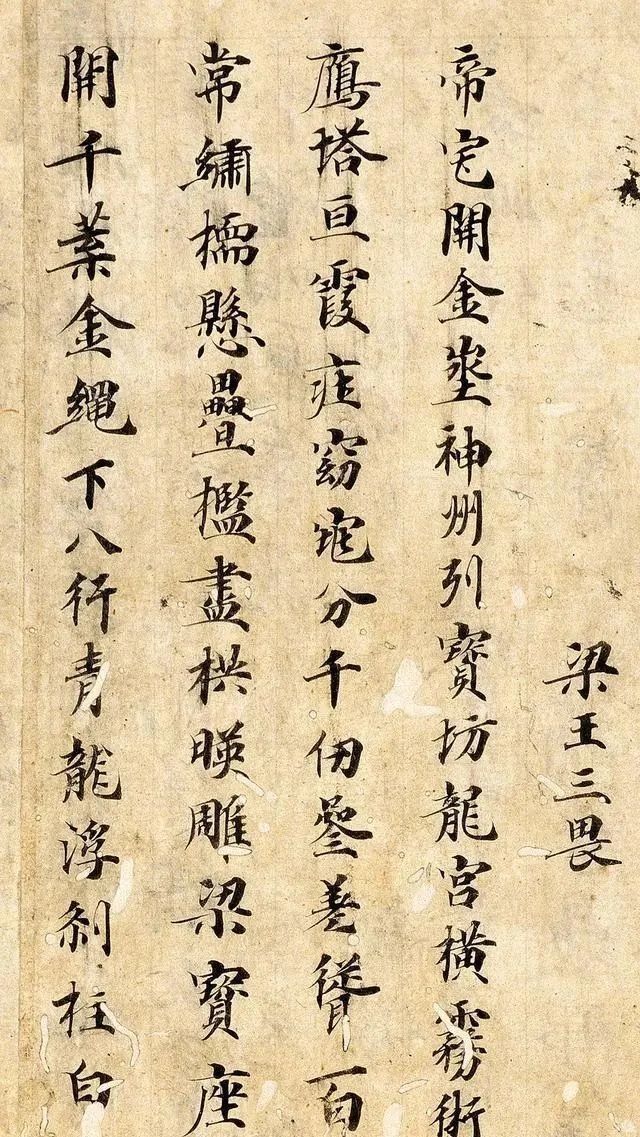 梁王三畏
帝宅開金埊神州列寶坊龍宮橫霧術
鴈塔亘霞庄窈窕分千仞參差聳百
常繡栭懸疊檻畫栱暎雕梁寶座
開千葉金繩下八行青龍浮刹柱白